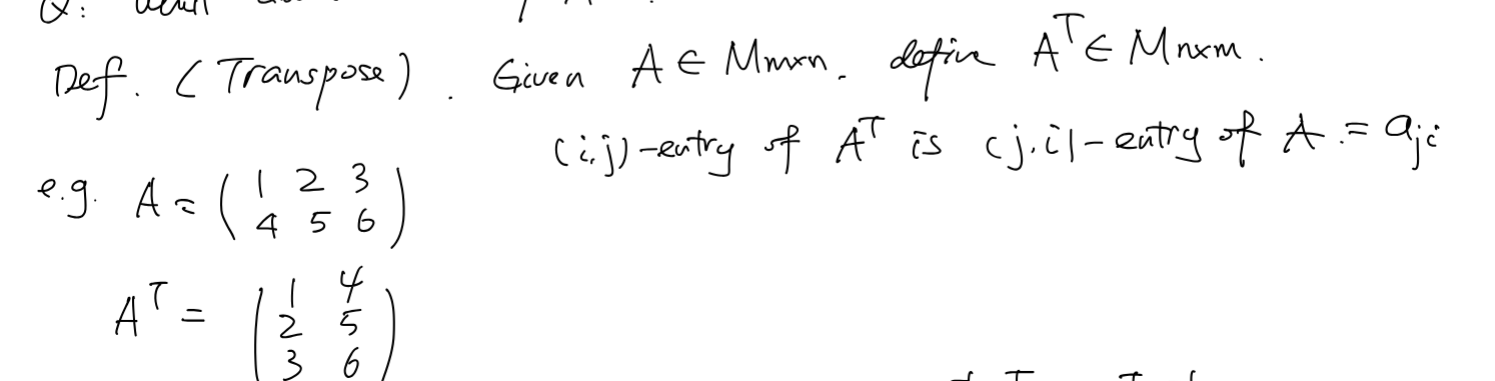 Q:
Def. (Transpose). Given A ∈ Mmxn. define Aᵀ ∈ Mnxm.
(i,j)-entry of Aᵀ is (j,i)-entry of A = aji
e.g. A = ( 1 2 3
4 5 6 )
Aᵀ = ( 1 4
2 5
3 6 )